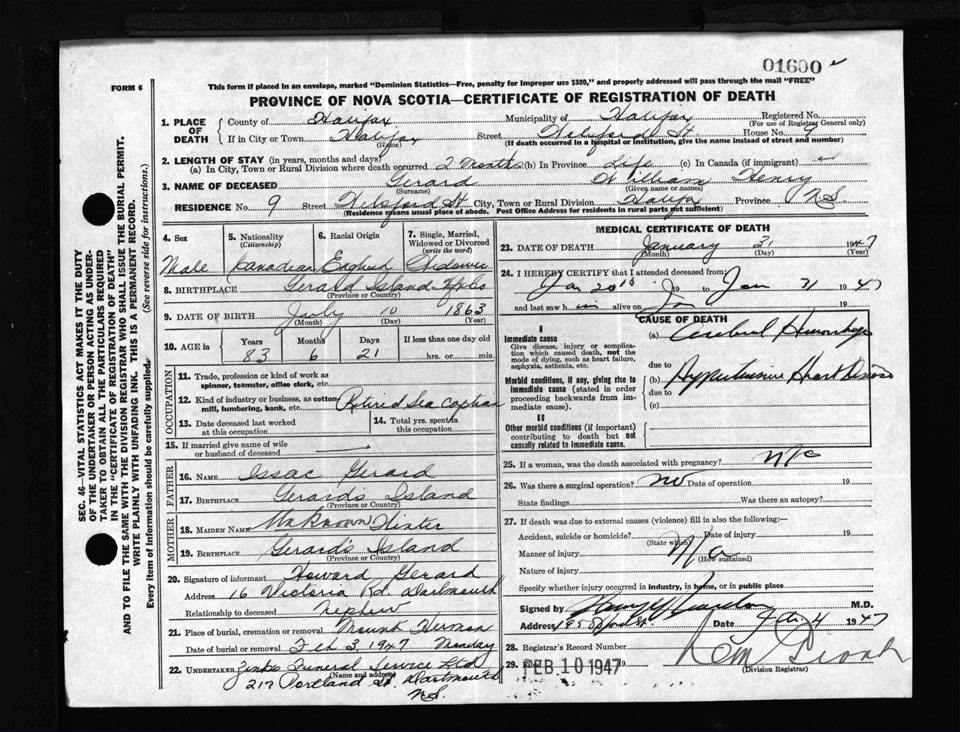 01600
FORM 6
This form if placed in an envelope, marked "Dominion Statistics—Free, penalty for improper use $300," and properly addressed will pass through the mail "FREE"
PROVINCE OF NOVA SCOTIA—CERTIFICATE OF REGISTRATION OF DEATH
SEC. 46—VITAL STATISTICS ACT MAKES IT THE DUTY
OF THE UNDERTAKER OR PERSON ACTING AS UNDER-
TAKER TO OBTAIN ALL THE PARTICULARS REQUIRED
IN THE "CERTIFICATE OF REGISTRATION OF DEATH"
AND TO FILE THE SAME WITH THE DIVISION REGISTRAR WHO SHALL ISSUE THE BURIAL PERMIT.
WRITE PLAINLY WITH UNFADING INK. THIS IS A PERMANENT RECORD.
Every item of information should be carefully supplied. (See reverse side for instructions.)
1. PLACE OF DEATH County of Halifax Municipality of Halifax Registered No.
(For use of Registrar General only)
If in City or Town Halifax Street St. House No. 9
(Name) (If death occurred in a hospital or institution, give the name instead of street and number)
2. LENGTH OF STAY (in years, months and days)
(a) In City, Town or Rural Division where death occurred 2 Months (b) In Province Life (c) In Canada (if immigrant)
3. NAME OF DECEASED Gerard William Henry
(Surname) (Given name or names)
RESIDENCE No. 9 Street St City, Town or Rural Division Halifax Province N.S.
(Residence means usual place of abode. Post Office Address for residents in rural parts not sufficient)
4. Sex
Male
5. Nationality
(Citizenship)
Canadian
6. Racial Origin
English
7. Single, Married,
Widowed or Divorced
(write the word)
Widower
8. BIRTHPLACE Gerard Island
(Province or Country)
9. DATE OF BIRTH July 10 1863
(Month) (Day) (Year)
10. AGE in Years Months Days If less than one day old
83 6 21 hrs. or min.
OCCUPATION
11. Trade, profession or kind of work as
spinner, teamster, office clerk, etc.
12. Kind of industry or business, as cotton
mill, lumbering, bank, etc. Retired Sea Captain
13. Date deceased last worked
at this occupation
14. Total yrs. spent in
this occupation
15. If married give name of wife
or husband of deceased
FATHER
16. Name Issac Gerard
17. Birthplace Gerards Island
(Province or Country)
MOTHER
18. Maiden Name Unknown
19. Birthplace Gerard's Island
(Province or Country)
20. Signature of informant Howard Gerard
Address 16 Victoria Rd. Dartmouth
Relationship to deceased Nephew
21. Place of burial, cremation or removal Mount Hermon
Date of burial or removal Feb 3, 1947 Monday
22. UNDERTAKER Funeral Service Ltd
(Name and address)
217 Portland St. Dartmouth
N.S.
MEDICAL CERTIFICATE OF DEATH
23. DATE OF DEATH January 31 1947
(Month) (Day) (Year)
24. I HEREBY CERTIFY that I attended deceased from:
Jan 20th 19 to Jan 31 1947
and last saw h im alive on Jan 19
CAUSE OF DEATH
I
Immediate cause
Give disease, injury or complica-
tion which caused death, not the
mode of dying, such as heart failure,
asphyxia, asthenia, etc.
(a) Cerebral Hemorrhage
due to
Morbid conditions, if any, giving rise to
immediate cause (stated in order
proceeding backwards from im-
mediate cause).
(b) Hypertensive Heart Disease
due to
(c)
II
Other morbid conditions (if important)
contributing to death but not
causally related to immediate cause.
25. If a woman, was the death associated with pregnancy?
26. Was there a surgical operation? no Date of operation 19
State findings Was there an autopsy?
27. If death was due to external causes (violence) fill in also the following:—
Accident, suicide or homicide? Date of injury 19
(State which)
Manner of injury N/a
(How sustained)
Nature of injury
Specify whether injury occurred in industry, in home, or in public place
Signed by M.D.
Address Date Feb 4 1947
28. Registrar's Record Number
29. FEB 10 1947
(Division Registrar)